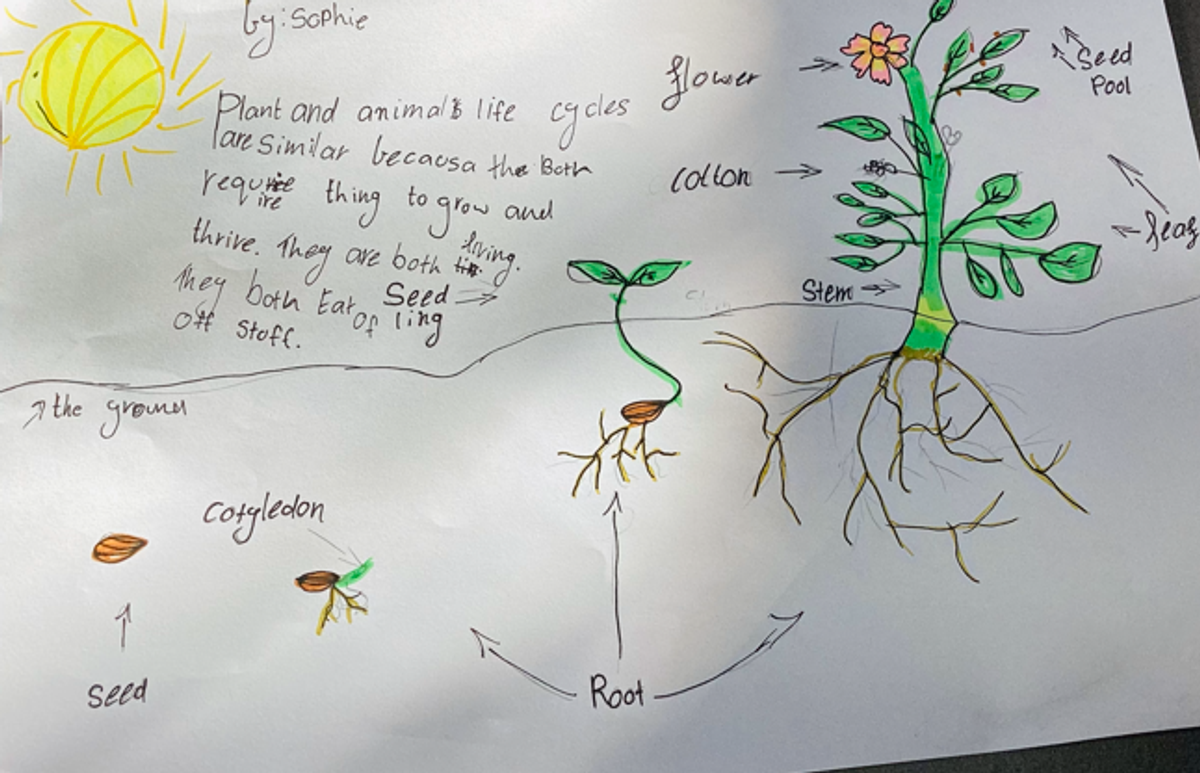 by: Sophie
Plant and animals life cycles
are Similar becausa the Both
require thing to grow and
thrive. They are both living.
They both Eat of ling
off stoff.
flower
Seed
Pool
Cotton
leaf
Stem
Seed
the ground
Cotyledon
Seed
Root